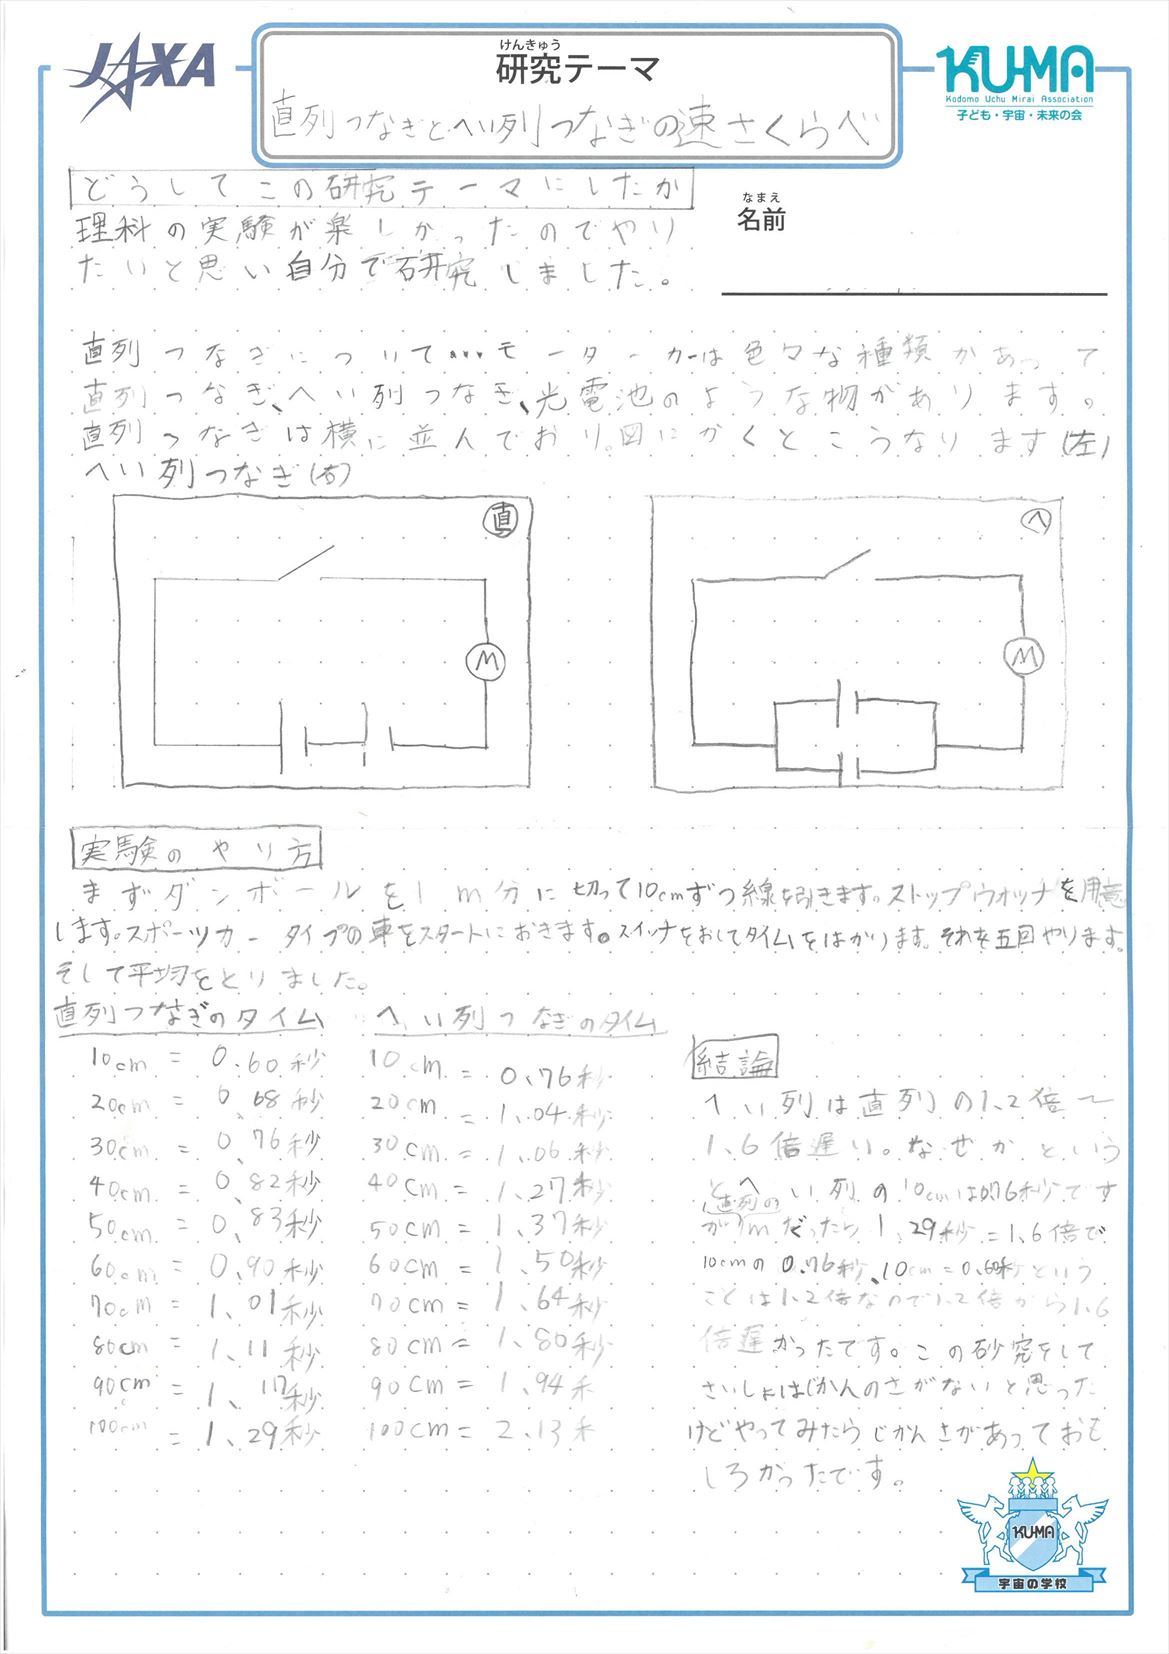 JAXA
けんきゅう
研究テーマ
直列つなぎとへい列つなぎの速さくらべ
KU-MA
Kodomo Uchu Mirai Association
子ども・宇宙・未来の会
どうしてこの研究テーマにしたか
理科の実験が楽しかったのでやり
たいと思い自分で研究しました。
なまえ
名前
直列つなぎについて・・・モーターカーは色々な種類があって
直列つなぎ、へい列つなぎ、光電池のような物があります。
直列つなぎは横に並んでおり。図にかくとこうなります(左)
へい列つなぎ(右)
直
M
へ
M
実験のやり方
まずダンボールを1m分に切って10cmずつ線を引きます。ストップウォッチを用意
します。スポーツカータイプの車をスタートにおきます。スイッチをおしてタイムをはかります。それを五回やります。
そして平均をとりました。
直列つなぎのタイム
10cm = 0.60秒
20cm = 0.68秒
30cm = 0.76秒
40cm = 0.82秒
50cm = 0.83秒
60cm = 0.90秒
70cm = 1.01秒
80cm = 1.11秒
90cm = 1.17秒
100cm = 1.29秒
へい列つなぎのタイム
10cm = 0.76秒
20cm = 1.04秒
30cm = 1.06秒
40cm = 1.27秒
50cm = 1.37秒
60cm = 1.50秒
70cm = 1.64秒
80cm = 1.80秒
90cm = 1.94禾
100cm = 2.13禾
結論
へい列は直列の1.2倍〜
1.6倍遅い。なぜかという
とへい列の10cmは0.76秒です
直列の
が1mだったら1.29秒=1.6倍で
10cmの0.76秒、10cm=0.60秒という
ことは1.2倍なので1.2倍から1.6
倍遅かったです。この研究をして
さいしょはじかんのさがないと思った
けどやってみたらじかんさがあっておも
しろかったです。
KU-MA
宇宙の学校